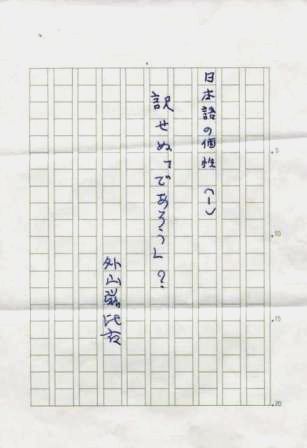 日本語の個性 (一)
訳せぬ「であろう」?
外山滋比古
5
10
15
20